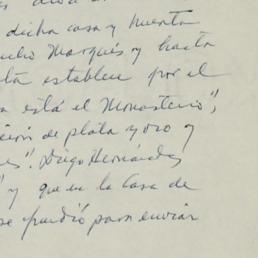 dicha casa y huerta
Marqués y hasta
establece por el
está el Monasterio",
de plata y oro y
". Diego Hernández
" y que en la Casa de
se fundió para enviar